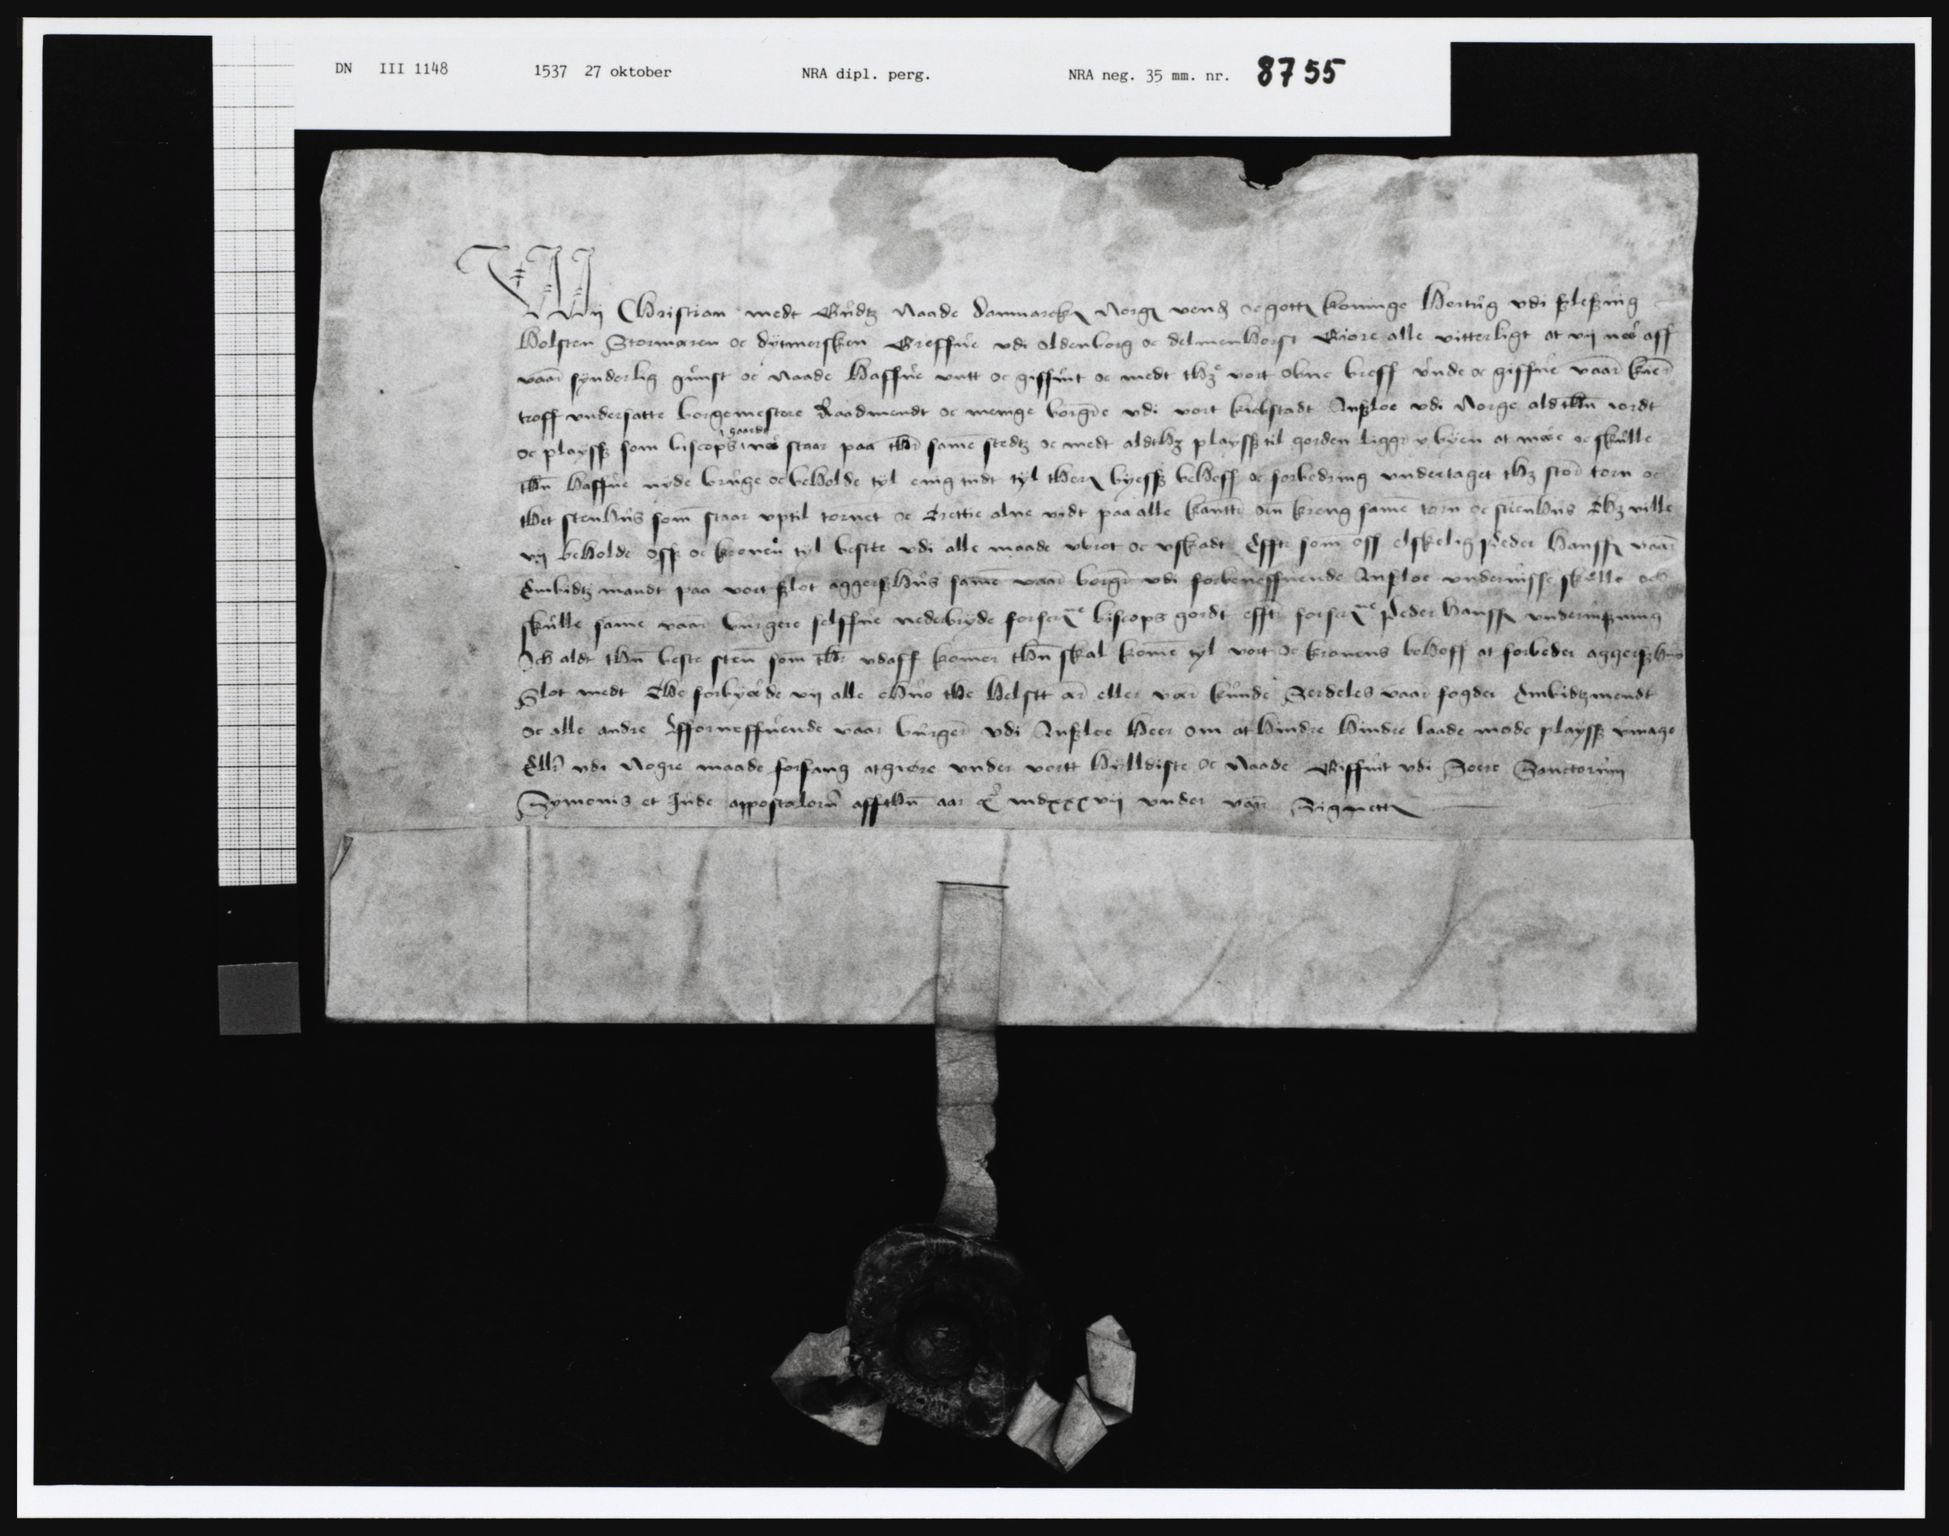 DN III 1148 1537 27 oktober NRA dipl. perg. NRA neg. 35 mm. nr. 8755
Wij Christian medt Gudtz Naade Danmarckes Norges vendes oc gottes koninge Hertug vdi slesuig
Holsten Stormaren oc dytmersken Greffue vdi oldenborg oc delmenhorst Giøre alle vitterligt at vij nw aff
vaar synderlig gunst oc Naade haffue vntt oc giffuit oc medt thz vort obne breff vnde oc giffue vaar kiær
troff vndersatte borgemestere Raadmendt oc menige borgre vdi vort kiøbstadt Anszloe vdi Norge ald then iordt
oc playssz som biscops gaardt nw staar paa ther same stedtz oc medt aldthz playssz til gorden ligger y byen at mwe oc skulle
then haffue nyde bruge oc beholde tyl euig tidt tyl theres byessz behoff oc forbedring vndertaget thz stor torn oc
thet stenhus som staar vptil tornet oc Trettie alne vidt paa alle kantter om kreng same torn oc stienhus Thz ville
vij beholde oss oc kronen tyl beste vdi alle maade vbrot oc vskadt Effter som oss elskelig Peder Hanssen vaar
Embidtz mandt paa vort slot aggerszhus same vaar borger vdi forbeneffnende Anszloe vnderuisse skulle och
skulle same vaar burgere selffue nederbryde forscreffne biscops gordt effter forscreffne Peder Hanssen vnderuiszning
Och aldt then beste sten som ther vdaff komer then skal kome tyl vort oc kronens behoff at forbeder aggerszhus
Slot medt Thi forbyde vij alle ehuo the helst ær eller være kunde Serdeles vaar fogder Embidtzmendt
oc alle andre fforneffnende vaar burger vdi Anszloe Heer om at hindre hindre laade mode playssz vmage
Eller vdi Nogre maade forfang at giøre vnder vortt hylldiste oc Naade Giffuit vdi Soere Sanctorum
Symonis et Iude appostolorum affthen aar mdxxxvij vnder vaar Signett